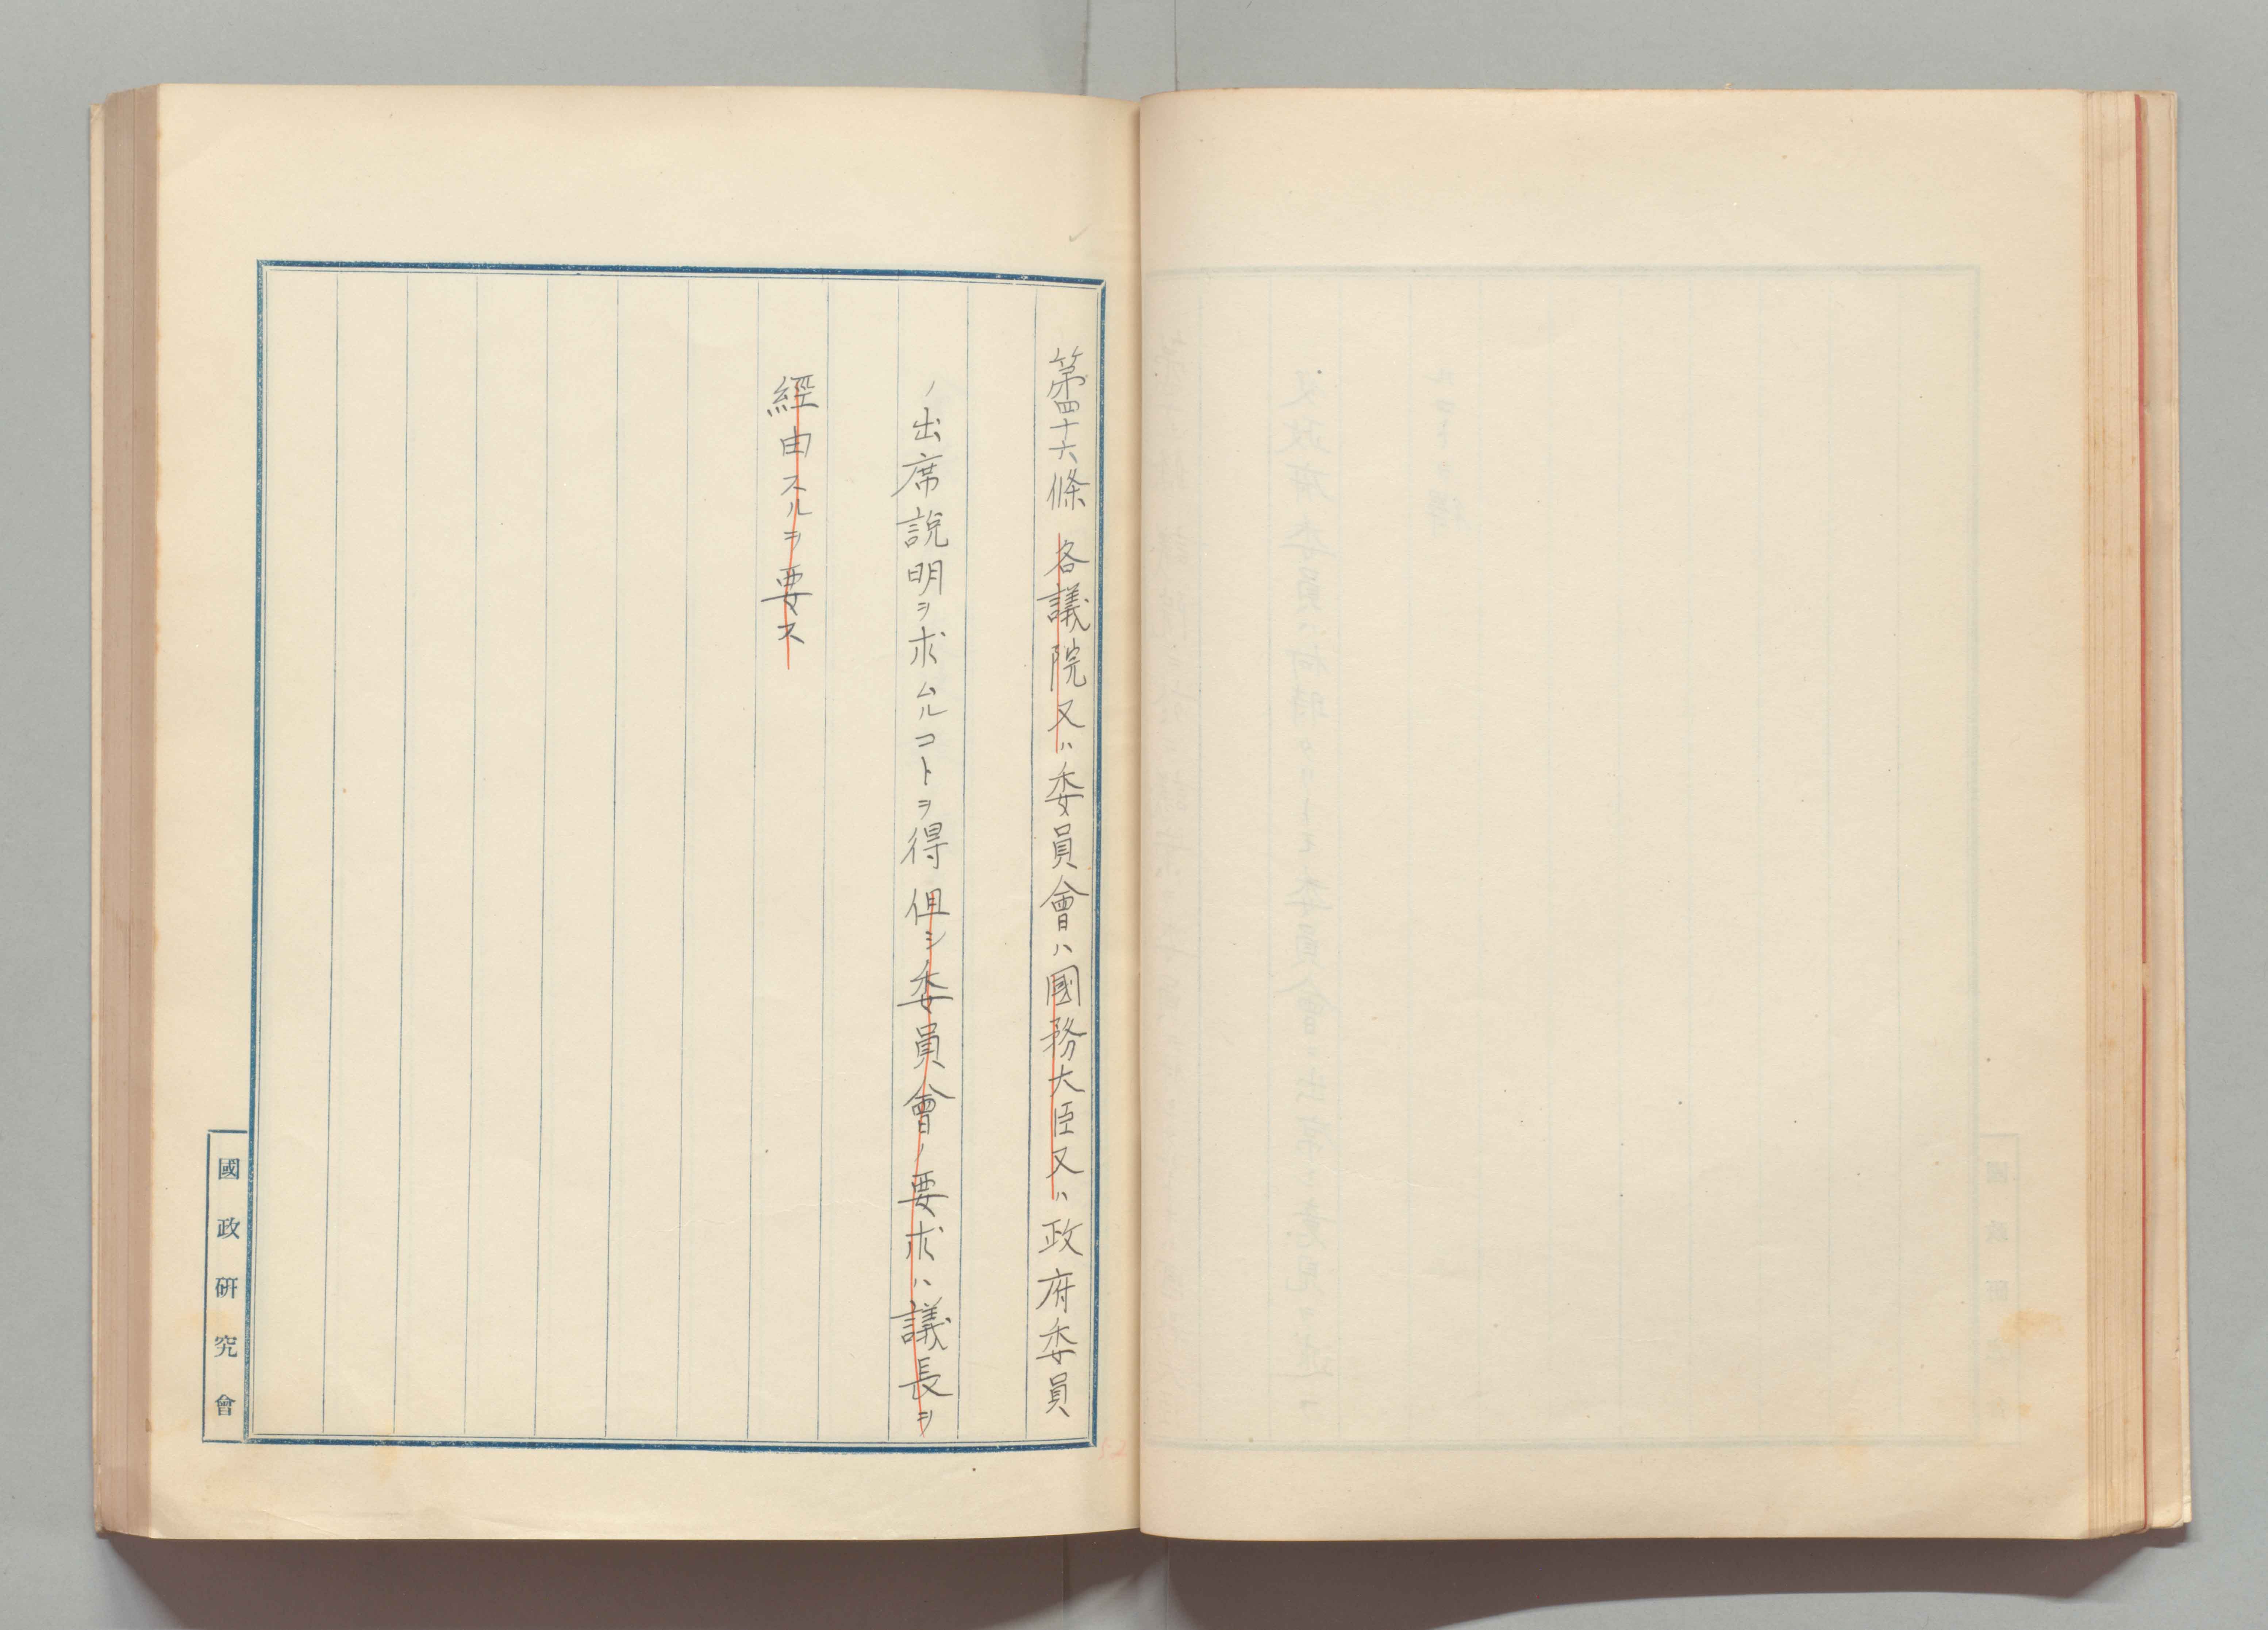 第四十六條 各議院又ハ委員會ハ國務大臣又ハ政府委員
ノ出席說明ヲ求ムルコトヲ得 但シ委員會ノ要求ハ議長ヲ
經由スルヲ要ス
國政硏究會